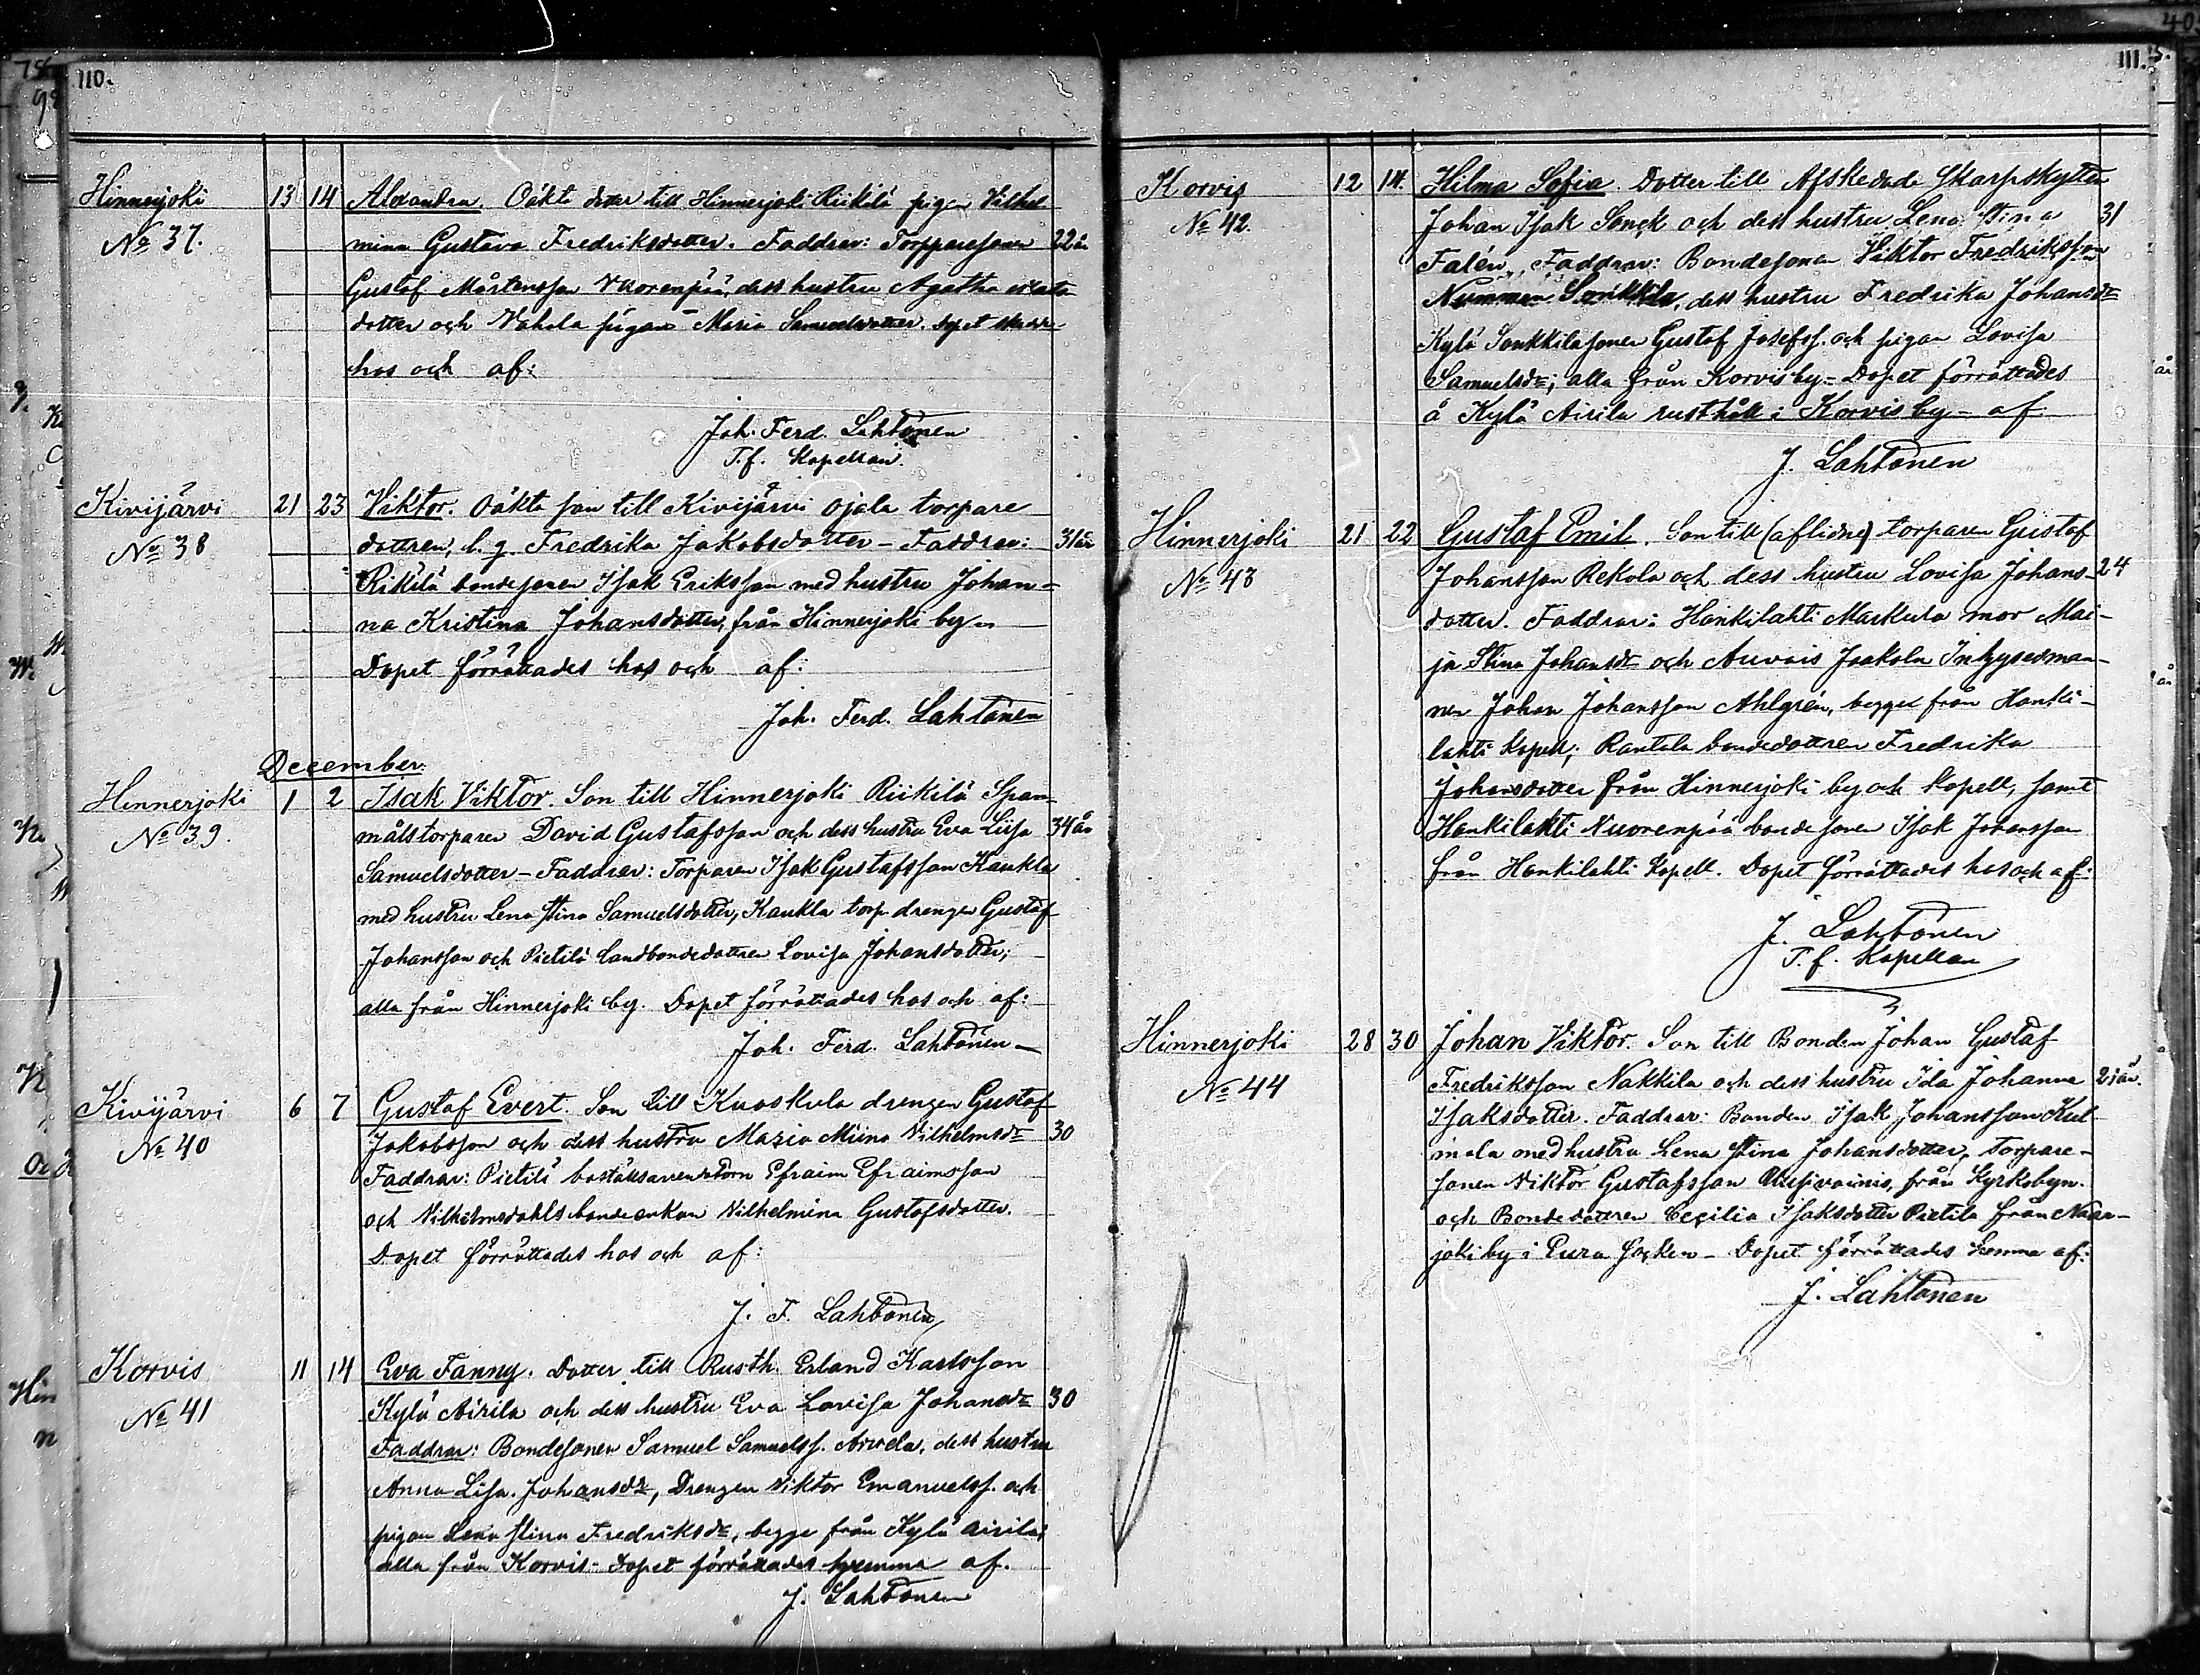 110.
Hinnerjoki 13 14 Alexandra. Oäkta dotter till Hinnerjoki Riikilä pigan Vilhel-
No 37. mina Gustava Fredriksdotter. Faddrar: Torpparesonen 22 år
Gustaf Mårtensson Vuorenpää, dess hustru Agatha
dotter och Vahala pigan Maria Samuelsdotter. Dopet skedde
hos och af:
Joh. Ferd. Lahtonen
T.f. Kapellan.
Kivijärvi 21 23 Viktor. Oäkta son till Kivijärvi Ojala torpare
No 38 dottren, l. g. Fredrika Jakobsdotter – Faddrar: 31 år
Rikilä bondesonen Isak Eriksson med hustru Johan-
na Kristina Johansdotter, från Hinnerjoki by.
Dopet förrättades hos och af:
Joh. Ferd. Lahtonen
December.
Hinnerjoki 1 2 Isak Viktor. Son till Hinnerjoki Riikilä Span-
No 39. målstorparen David Gustafsson och dess hustru Eva Liisa 34 år
Samuelsdotter – Faddrar: Torparen Isak Gustafsson Kaukla
med hustru Lena Stina Samuelsdotter, Kaukla torp drengen Gustaf
Johansson och Pietilä landbondedottren Lovisa Johansdotter;
alla från Hinnerjoki by. Dopet förrättades hos och af:
Joh. Ferd. Lahtonen –
Kivijärvi 6 7 Gustaf Evert. Son till Kuoskola drengen Gustaf
No 40 Jakobsson och dess hustru Maria Miina Vilhelmsdr 30
Faddrar: Pietilä boställsarendatorn Efraim Efraimsson
och Vilhelmsdahls bondeenkan Vilhelmina Gustafsdotter.
Dopet förrättades hos och af:
J. F. Lahtonen
Korvis 11 14 Eva Fanny. Dotter till Rusth. Erland Karlsson
No 41 Kylä Airila och dess hustru Eva Lovisa Johansdr 30
Faddrar: Bondesonen Samuel Samuelss. Arvela, dess hustru
Anna Lisa Johansdr, Drengen Viktor Emanuelss. och
pigan Lena Stina Fredriksdr, begge från Kylä Airila;
alla från Korvis – Dopet förrättades hemma af.
J. Lahtonen
111.
Korvis 12 14. Hilma Sofia. Dotter till Afskedade Skarpskytten
No 42. Johan Isak Sonck och dess hustru Lena Stina 31
Falén. Faddrar: Bondesonen Viktor Fredriksson
Nummen Sonkkila, dess hustru Fredrika Johansdr
Kylä Sonkkilasonen Gustaf Josefss. och pigan Lovisa
Samuelsdr; alla från Korvis by – Dopet förrättades
å Kylä Airila rusthåll i Korvis by – af
J. Lahtonen
Hinnerjoki 21 22 Gustaf Emil. Son till (aflidne) torparen Gustaf
No 43 Johansson Rekola och dess hustru Lovisa Johans- 24
dotter. Faddrar: Honkilahti Markula mor Mai-
ja Stina Johansdr och Auvais Jaakola Inhysesman-
nen Johan Johansson Ahlgrén, begge från Honki-
lahti Kapell; Rantala bondedottren Fredrika
Johansdotter från Hinnerjoki by och Kapell, samt
Honkilahti Vuorenpää bondesonen Isak Johansson
från Honkilahti Kapell. Dopet förrättades hos och af:
J. Lahtonen
T.f. Kapellan
Hinnerjoki 28 30 Johan Viktor. Son till Bonden Johan Gustaf
No 44 Fredriksson Nakkila och dess hustru Ida Johanna 21 år.
Isaksdotter. Faddrar: Bonden Isak Johansson Kul-
mala med hustru Lena Stina Johansdotter, torpare-
sonen Viktor Gustafsson från Kyrkobyn.
och Bondedottren Cecilia Isaksdotter Pietilä från Naar-
joki by i Eura Socken – Dopet förrättades hemma af:
J. Lahtonen